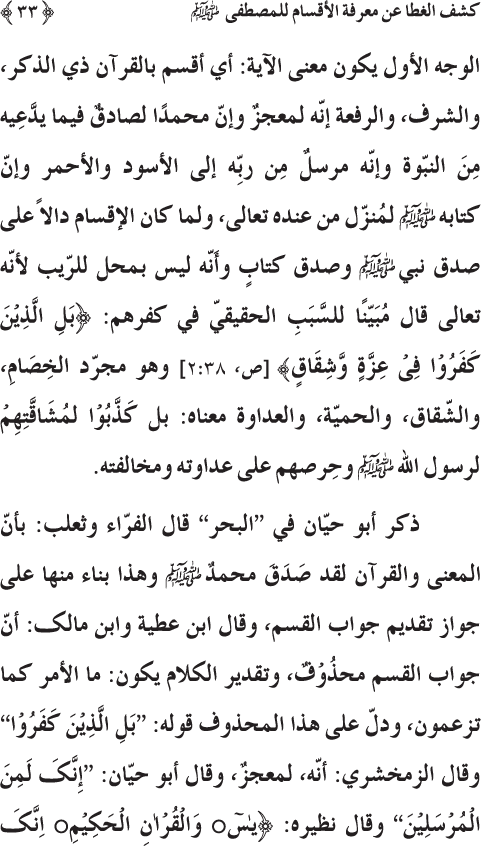 كشف الغطا عن معرفة الأقسام للمصطفى ﷺ ﴿٣٣﴾
الوجه الأول يكون معنى الآية: أي أقسم بالقرآن ذي الذكر،
والشرف، والرفعة إنّه لمعجزٌ وإنّ محمدًا لصادقٌ فيما يدَّعِيه
مِنَ النبّوة وإنّه مرسلٌ مِن ربِّه إلى الأسود والأحمر وإنّ
كتابه ﷺ لمُنزّل من عنده تعالى، ولما كان الإقسام دالاً على
صدق نبي ﷺ وصدق كتابٍ وأنّه ليس بمحل للرّيب لأنّه
تعالى قال مُبَيّنًا للسَّبَبِ الحقيقيّ في كفرهم: ﴿بَلِ الَّذِيْنَ
كَفَرُوْا فِيْ عِزَّةٍ وَّشِقَاقٍ﴾ [ص، ٢:٣٨] وهو مجرّد الخِصَامِ،
والشّقاق، والحميّة، والعداوة معناه: بل كَذَّبُوْا لمُشَاقَّتِهِمْ
لرسول الله ﷺ وحِرصهم على عداوته ومخالفته.
ذكر أبو حيّان في ”البحر“ قال الفرّاء وثعلب: بأنّ
المعنى والقرآن لقد صَدَقَ محمدٌ ﷺ وهذا بناء منها على
جواز تقديم جواب القسم، وقال ابن عطية وابن مالك: أنّ
جواب القسم محذُوْفٌ، وتقدير الكلام يكون: ما الأمر كما
تزعمون، ودلّ على هذا المحذوف قوله: ”بَلِ الَّذِيْنَ كَفَرُوْا“
وقال الزمخشري: أنّه، لمعجزٌ، وقال أبو حيّان: ”إِنَّكَ لَمِنَ
الْمُرْسَلِيْنَ“ وقال نظيره: ﴿يٰسٓ○ وَالْقُرْاٰنِ الْحَكِيْمِ○ اِنَّكَ